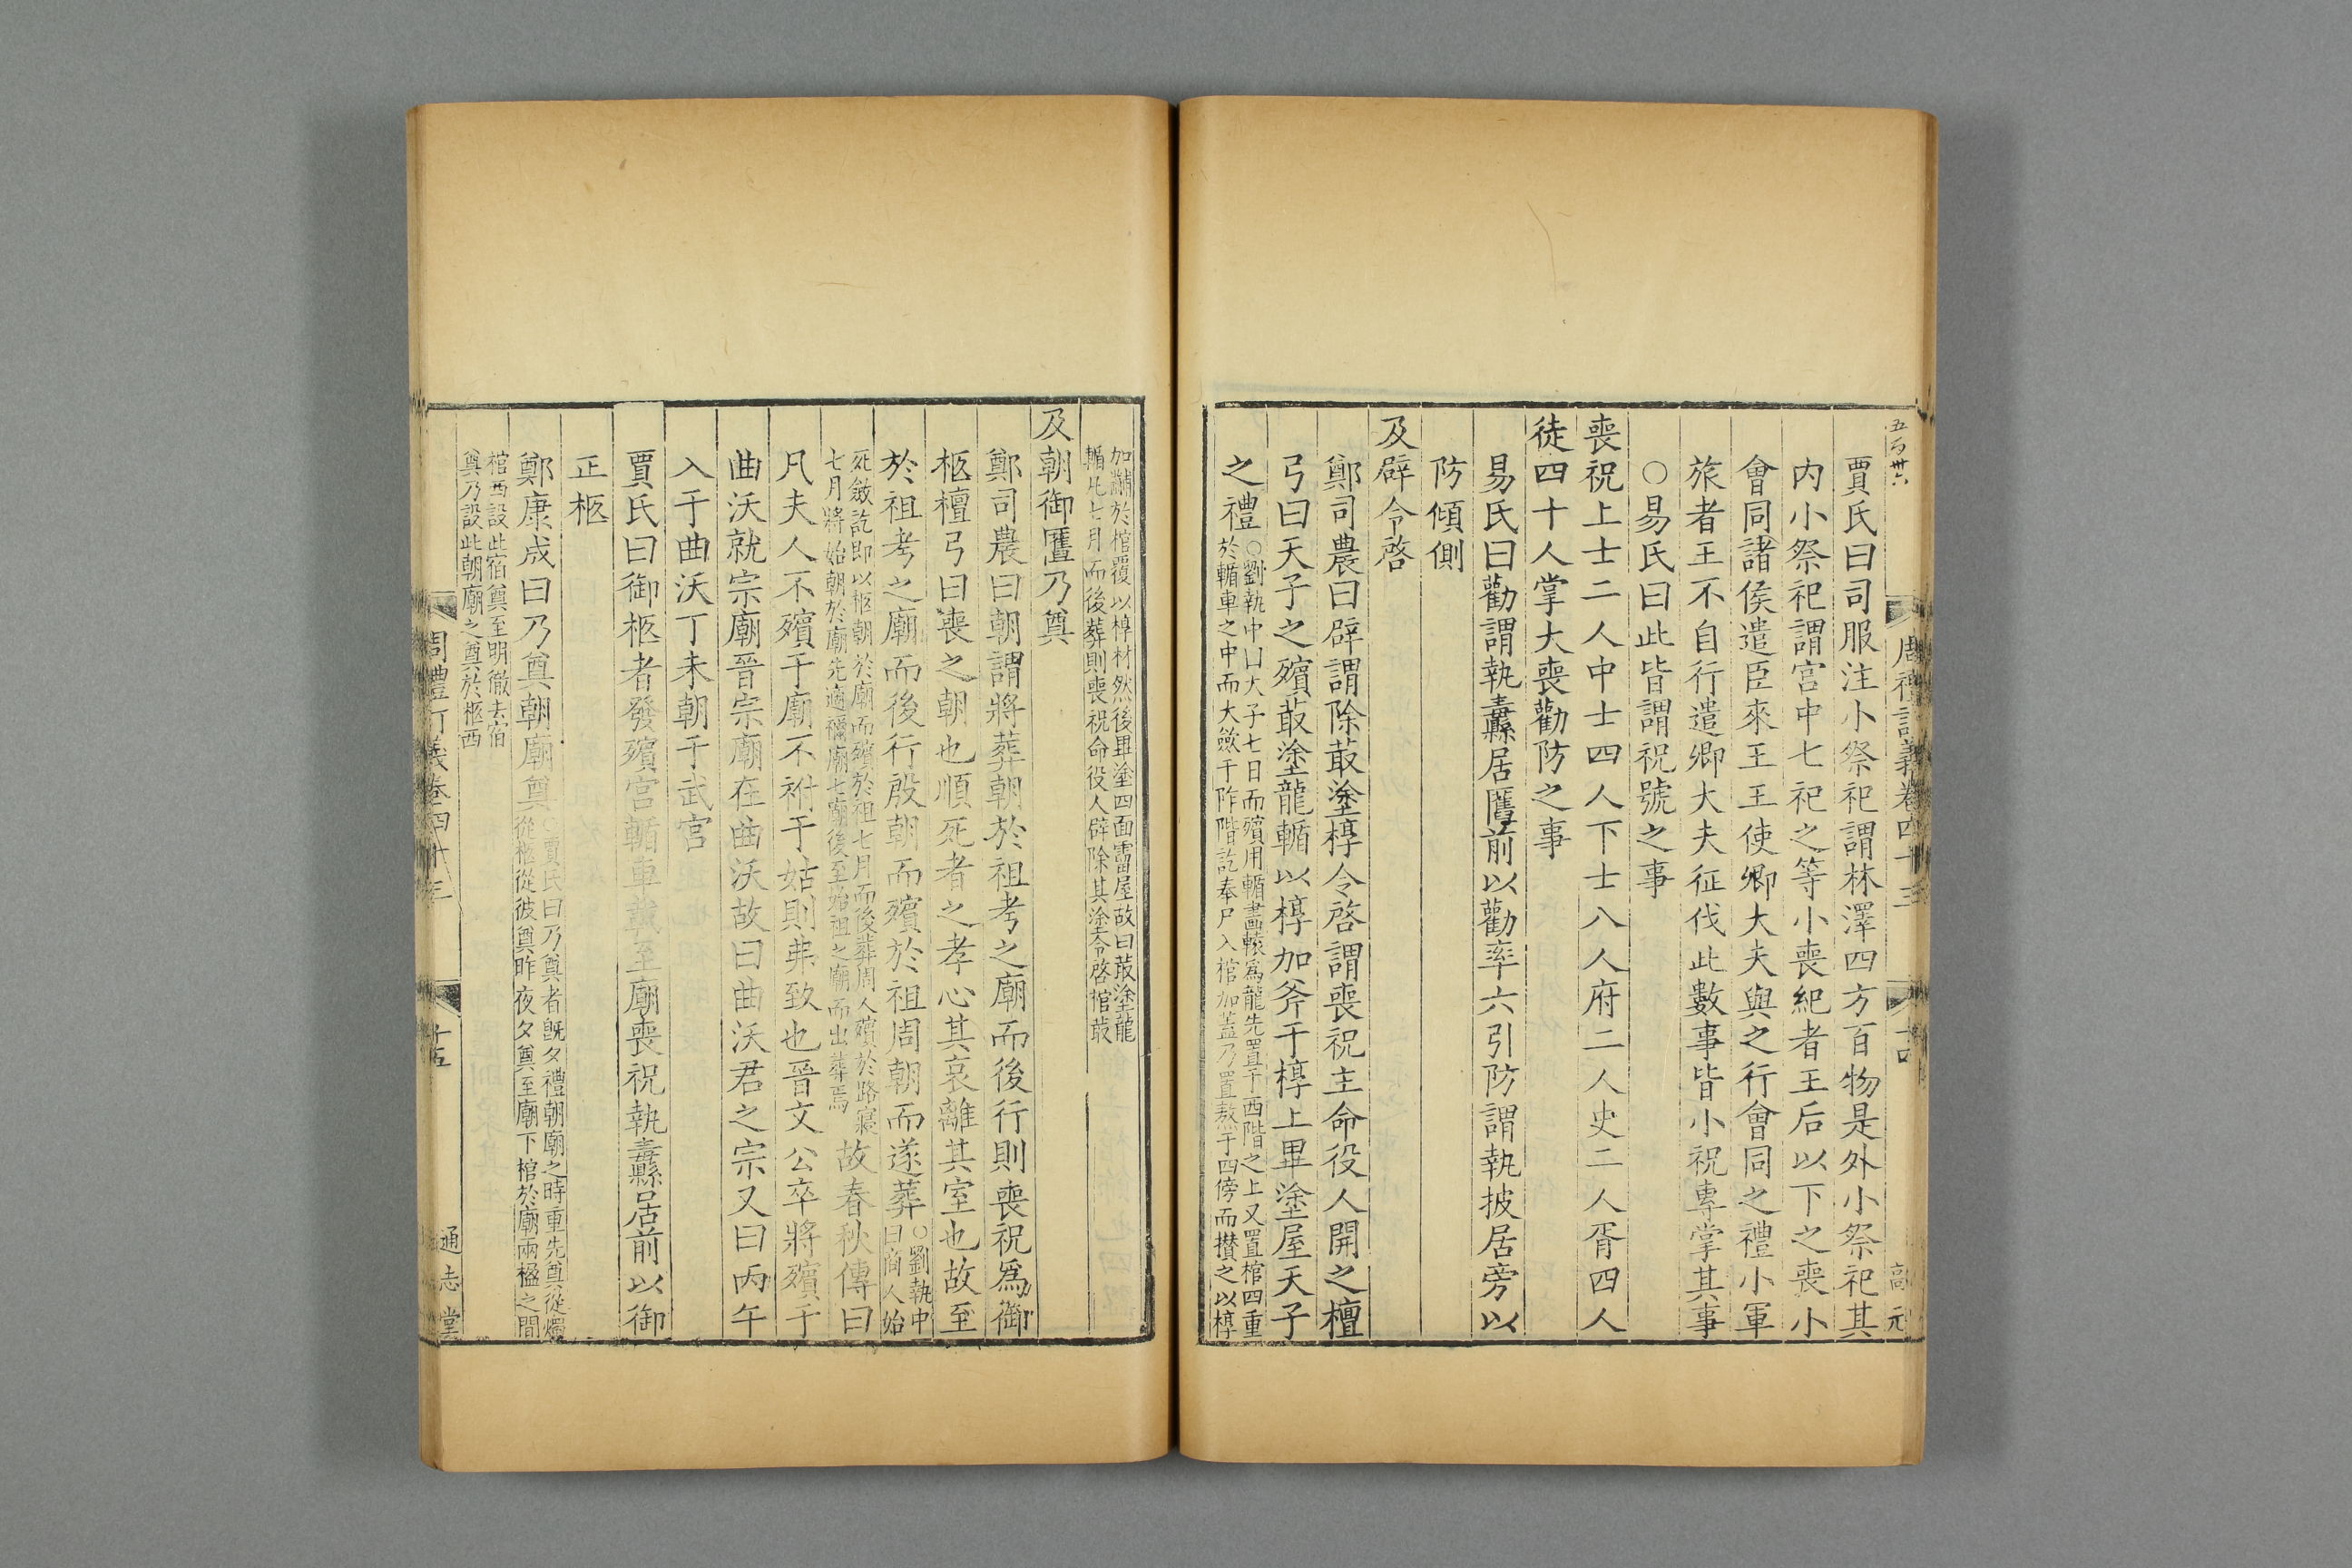 五百卅六
周禮訂義卷四十三
十四
高元
賈氏曰司服注小祭祀謂林澤四方百物是外小祭祀其
内小祭祀謂宫中七祀之等小喪紀者王后以下之喪小
會同諸侯遣臣來王王使卿大夫與之行會同之禮小軍
旅者王不自行遣卿大夫征伐此數事皆小祝專掌其事
○易氏曰此皆謂祝號之事
喪祝上士二人中士四人下士八人府二人史二人胥四人
徒四十人掌大喪勸防之事
易氏曰勸謂執纛居匶前以勸率六引防謂執披居旁以
防傾側
及辟令啓
鄭司農曰辟謂除菆塗椁令啓謂喪祝主命役人開之檀
弓曰天子之殯菆塗龍輴以椁加斧于椁上畢塗屋天子
之禮
○劉執中曰天子七日而殯用輴畫轅爲龍先置于西階之上又置棺四重
於輴車之中而大歛于阼階訖奉尸入棺加蓋乃置熬于四傍而攅之以椁
加黼於棺覆以椁材然後畢塗四面霤屋故曰菆塗龍
輴凡七月而後葬則喪祝命役人辟除其塗令啓棺菆
及朝御匶乃奠
鄭司農曰朝謂將葬朝於祖考之廟而後行則喪祝爲御
柩檀弓曰喪之朝也順死者之孝心其哀離其室也故至
於祖考之廟而後行殷朝而殯於祖周朝而遂葬
○劉執中
曰商人始
死斂訖即以柩朝於廟而殯於祖七月而後葬周人殯於路寢
七月將始朝於廟先適禰廟七廟後至始祖之廟而出葬焉
故春秋傳曰
凡夫人不殯于廟不祔于姑則弗致也晉文公卒將殯于
曲沃就宗廟晉宗廟在曲沃故曰曲沃君之宗又曰丙午
入于曲沃丁未朝于武宫
賈氏曰御柩者發殯宫輴車載至廟喪祝執纛居前以御
正柩
鄭康成曰乃奠朝廟奠
○賈氏曰乃奠者旣夕禮朝廟之時重先奠從燭
從柩從彼奠昨夜夕奠至廟下棺於廟兩楹之間
棺西設此宿奠至明徹去宿
奠乃設此朝廟之奠於柩西
周禮訂義卷四十三
十五
通志堂